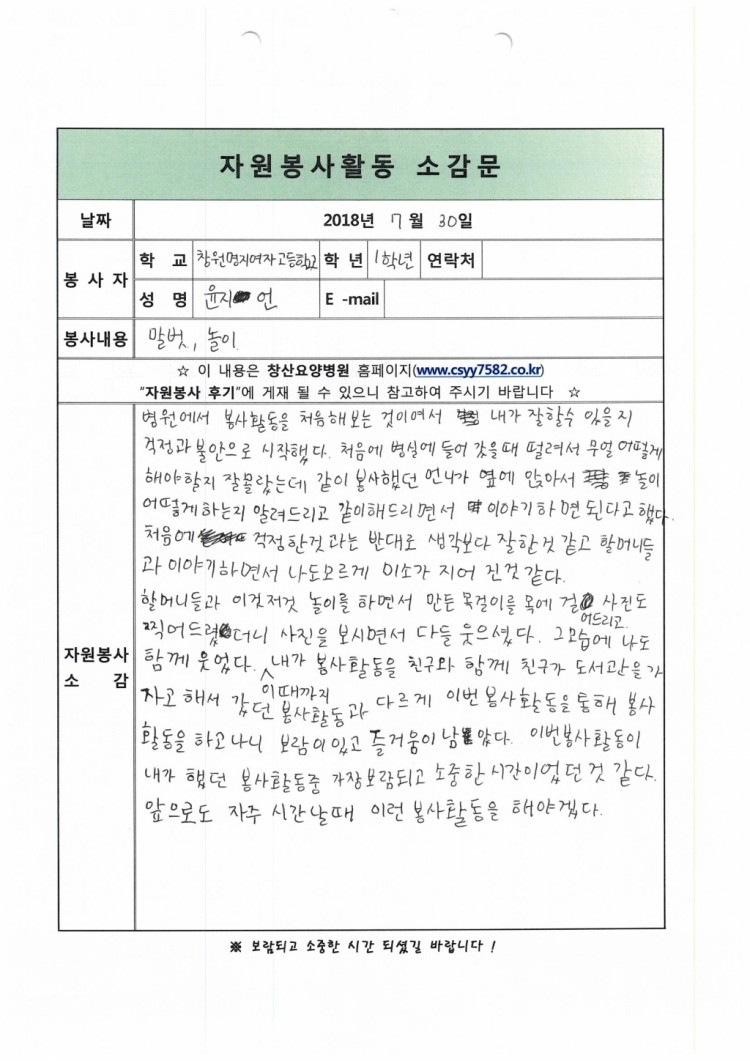 자원봉사활동 소감문
날짜 2018년 7월 30일
봉 사 자 학 교 창원명지여자고등학교 학 년 1학년 연락처
성 명 윤지언 E -mail
봉사내용 말벗, 놀이
☆ 이 내용은 창산요양병원 홈페이지(www.csyy7582.co.kr)
"자원봉사 후기"에 게재 될 수 있으니 참고하여 주시기 바랍니다 ☆
자원봉사
소 감
병원에서 봉사활동을 처음해보는 것이여서 내가 잘할수 있을지
걱정과 불안으로 시작했다. 처음에 병실에 들어 갔을때 떨려서 무얼 어떻게
해야할지 잘몰랐는데 같이 봉사했던 언니가 옆에 앉아서 놀이
어떻게 하는지 알려드리고 같이해드리면서 이야기하면 된다고 했다.
처음에 걱정한것 과는 반대로 생각보다 잘한것 같고 할머니들
과 이야기하면서 나도모르게 미소가 지어 진것 같다.
할머니들과 이것저것 놀이를 하면서 만든 목걸이를 목에 걸어드리고 사진도
찍어드렸더니 사진을 보시면서 다들 웃으셨다. 그모습에 나도
함께 웃었다. 내가 봉사활동을 친구와 함께 친구가 도서관을 가
자고 해서 갔던 이때까지 봉사활동과 다르게 이번 봉사활동을 통해 봉사
활동을 하고나니 보람이있고 즐거움이 남았다. 이번봉사활동이
내가 했던 봉사활동중 가장보람되고 소중한 시간이었던 것 같다.
앞으로도 자주 시간날때 이런 봉사활동을 해야겠다.
※ 보람되고 소중한 시간 되셨길 바랍니다 !